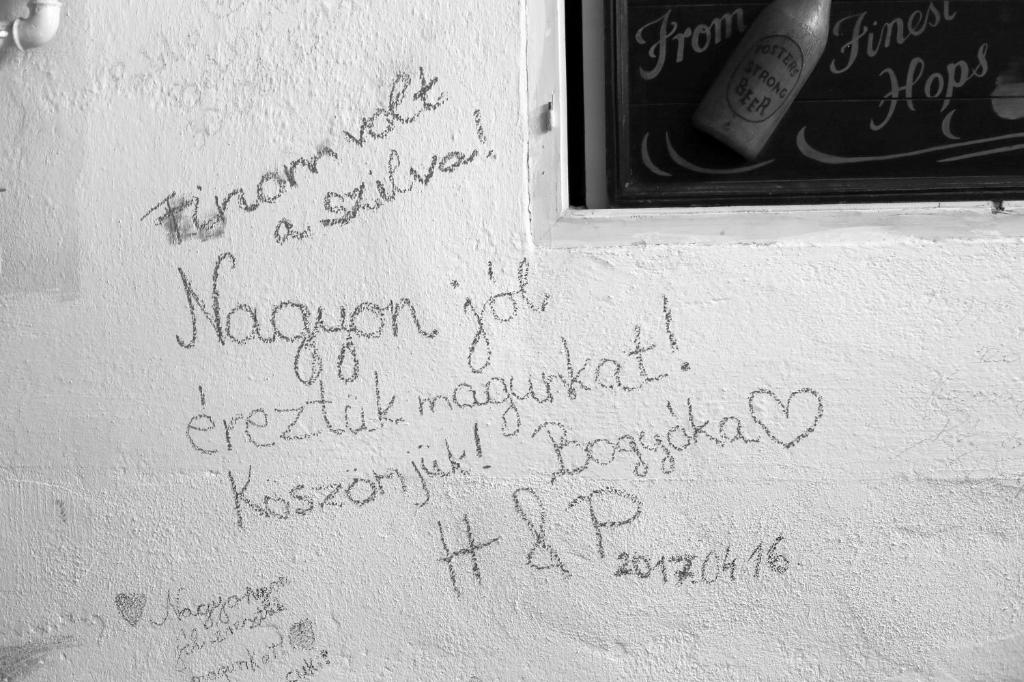 From Finest
Hops
POSTERS
STRONG
BEER
Finom volt
a szilva!
Nagyon jól
éreztük magunkat!
Köszönjük! Bogyóka
H & P
2017.04.16.
Nagyon
jól éreztük
magunkat!